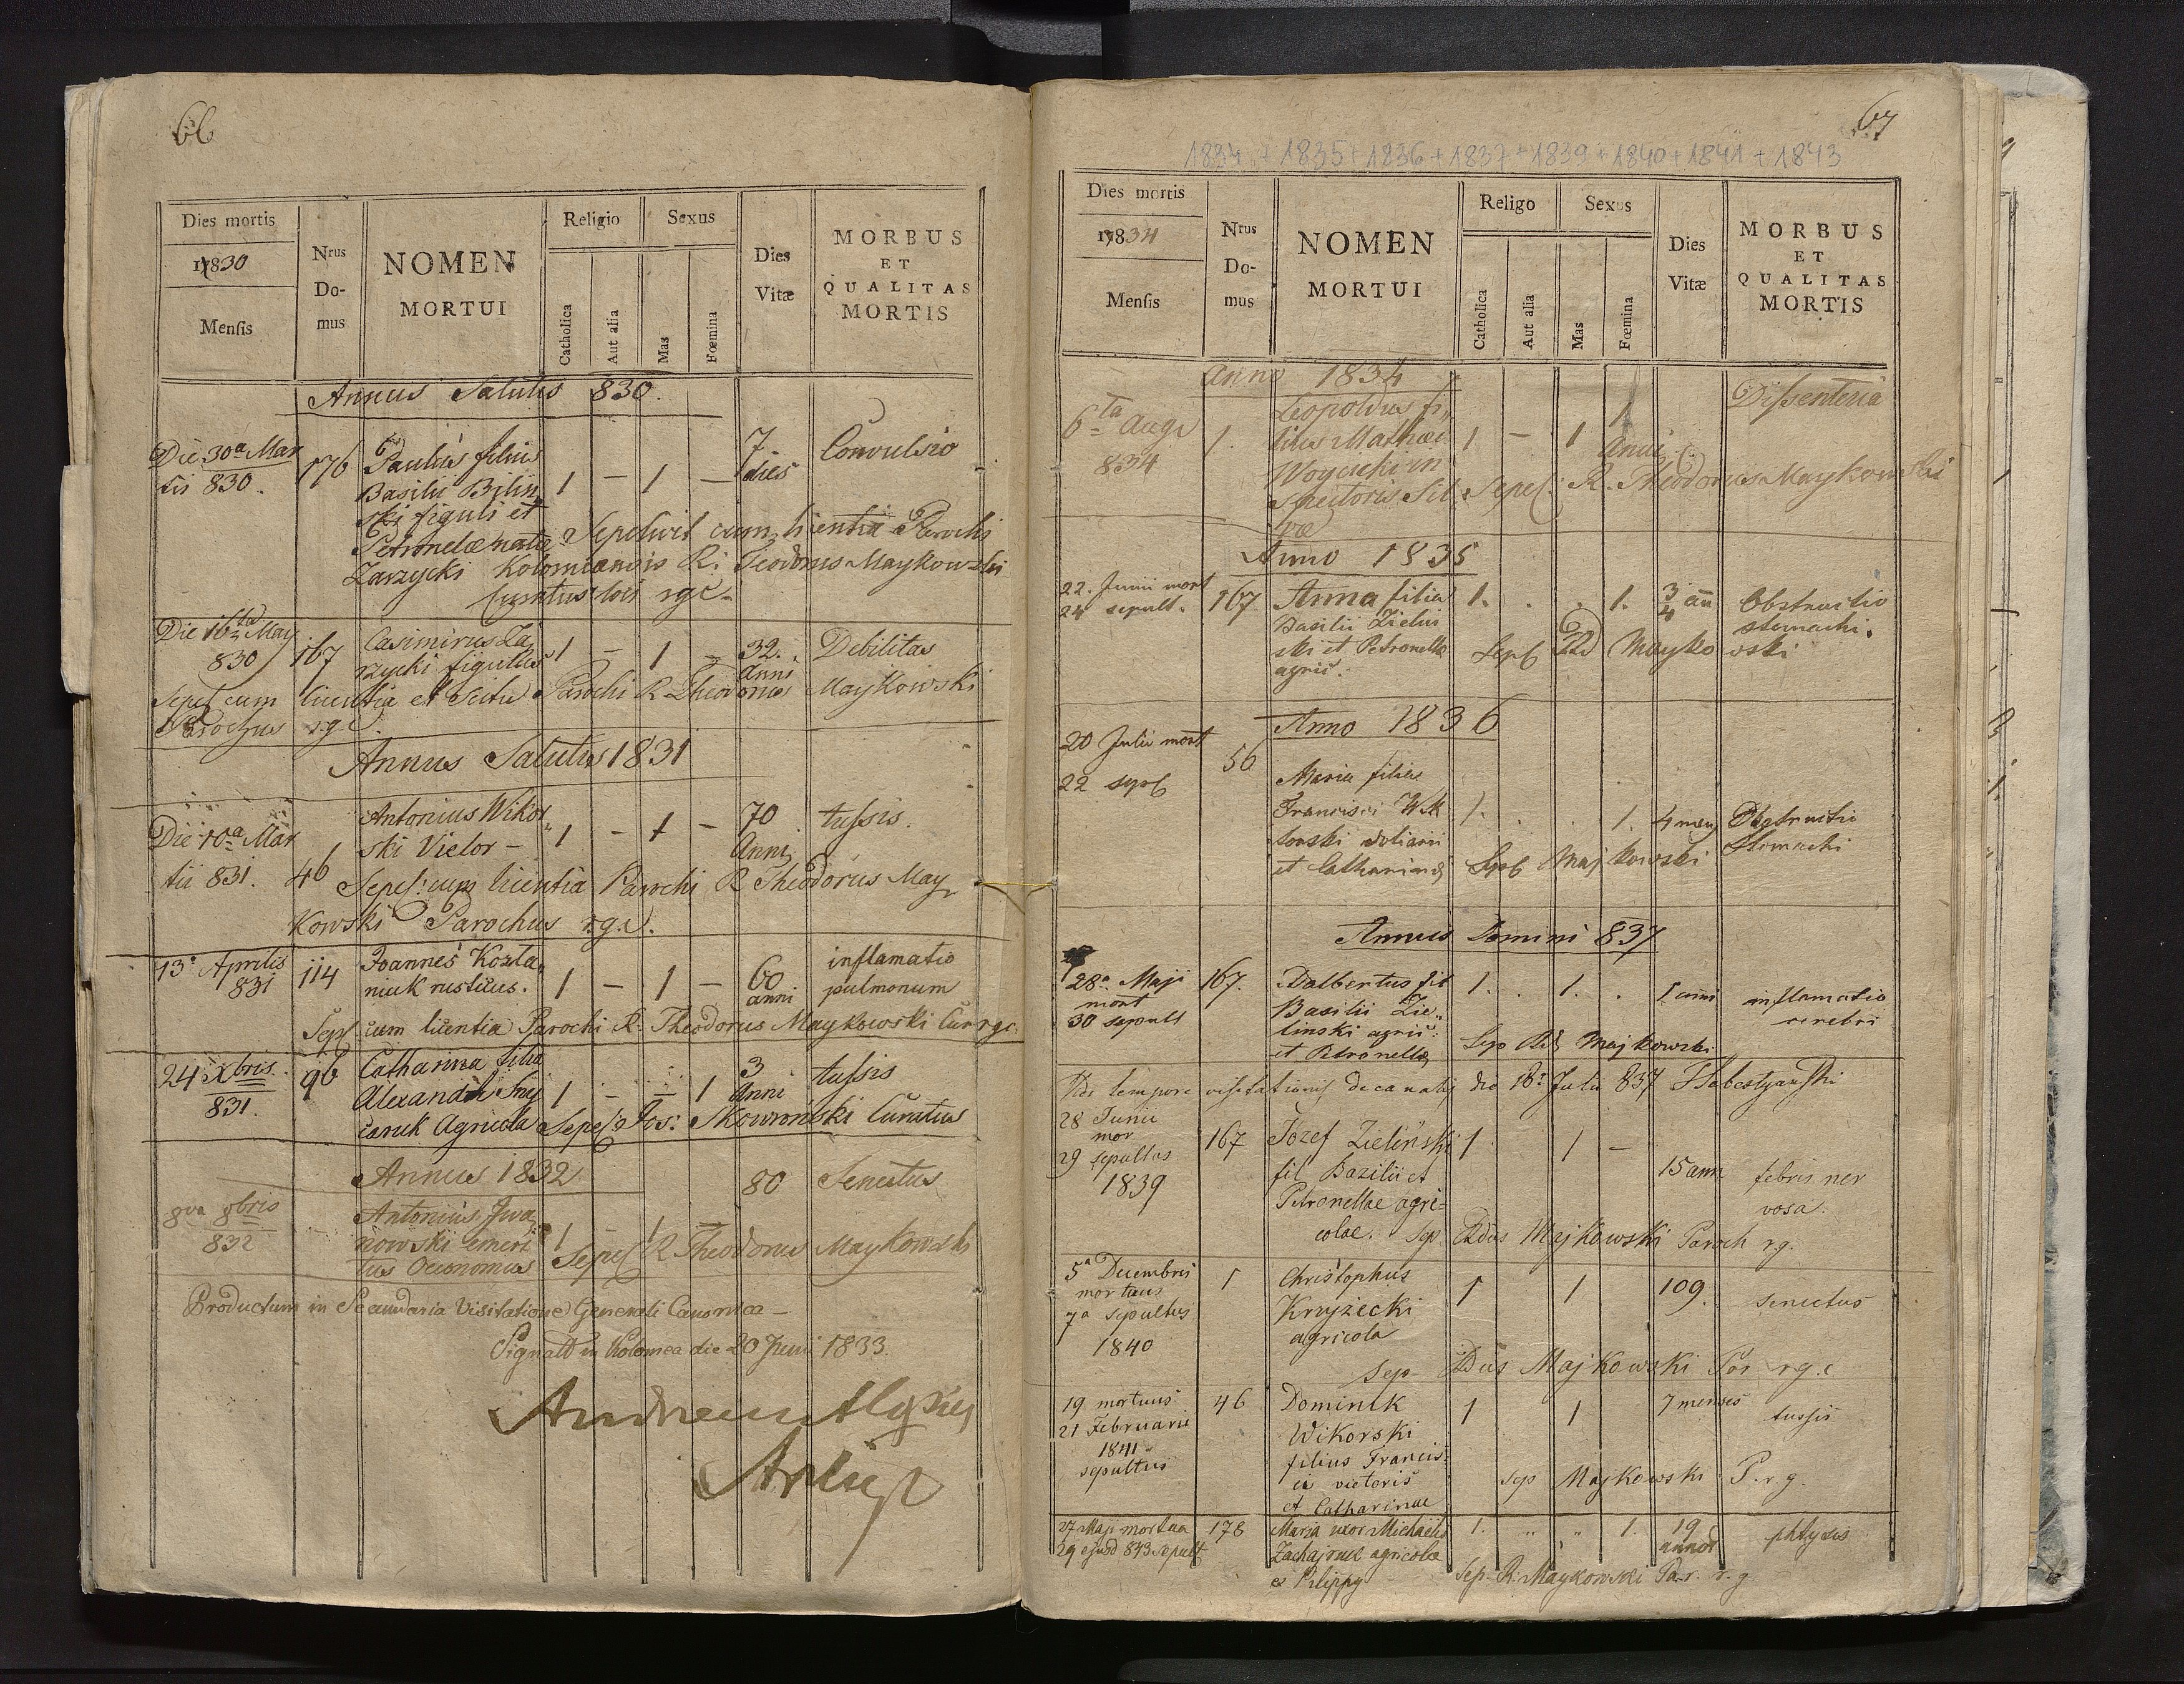 66
Dies mortis
1830
Mensis
Nrus
Do-
mus
NOMEN
MORTUI
Religio
Catholica
Aut alia
Sexus
Mas
Fœmina
Dies
Vitæ
MORBUS
ET
QUALITAS
MORTIS
Annus Salutis 830.
Die 30a Mar
tis 830.
176
Paulus filius
Basilii Bilin„
ski figuli et
Petronelæ natæ
Zarzycki
1 – 1 –
7
dies
Convulsio
Sepelivit cum licentia Parochi
Kolomeansis R: Teodorus Maykowski
Curatus loci rgc
Die 16ta May
830
167
Casimirus Za
rzycki figulus
1 – 1 –
32.
Anni
Debilitas
Sepel cum licentia et Scitu Parochi R Theodorus Maykowski
Parochus r.g.c.
Annus Salutis 1831
Die 10a Mar
tii 831.
46
Antonius Wikor„
ski Vietor –
1 – 1 –
70
Anni
tussis.
Sepel: cum licentia Parochi R Theodorus May
Kowski Parochus r.g.c.
13a Aprilis
831
114
Joannes Kozta„
niuk rusticus.
1 – 1 –
60
anni
inflamatio
pulmonum
Sepel cum licentia Parochi R. Theodorus Maykowski Cur rgc.
24 Xbris
831.
96
Catharina filia
Alexandri
caruk Agricola
1 – – 1
3
Anni
tussis
Sepel: Jos: Skowroński Curatus
Annus 1832
8va 9bris
832
Antonius Jwa
nowski emeri
tus Oeconomus
1 – 1
80
Senectus
Sepel R Theodorus Maykowski
Productum in Secundaria Visitatione Generali Canonica –
Signatt in Kolomea die 20 Juni 1833.
67
1834 + 1835 + 1836 + 1837 + 1839 + 1840 + 1841 + 1843
Dies mortis
1834
Mensis
Nrus
Do-
mus
NOMEN
MORTUI
Religo
Catholica
Aut alia
Sexus
Mas
Fœmina
Dies
Vitæ
MORBUS
ET
QUALITAS
MORTIS
Anno 1834
6ta Aug
834
1.
Leopoldus fi„
lius Mathæi
Woycicki in
spectoris Sil
væ
1 – 1
1
Anni
Dissenteria
Sepel: R. Theodorus Maykowski
Anno 1835
22. Junii mort
24 sepult.
167
Anna filia
Basilii Zielin
ski et Petronella
agric.
1. . . 1.
3/4 añ
Obstructio
stomachi.
Sepl Maykowski
Anno 1836
20 Julii mort
22 sepl
56
Maria filia
Francisci Wik
torski doliarii
et Catharinae
1. . . 1.
4 men
Obstructio
Stomachi
Sepl Majkowski
Annus Domini 837
28a Maji
mort
30 sepult
167.
Dalbertus fil
Basilii Zie„
linski agric:
et Petronella
1. . 1. .
1 anni
inflamatio
cerebri
Sep Majkowski
tempore visitationis decanalis die 18a Julii 837
28 Junii
mor
29 sepultus
1839
167
Jozef Zieliński
fil Bazilii et
Petronellae agri=
colae.
1 1 –
15 ann
febris ner
vosa.
Sep Majkowski Paroch rg.
5a Decembris
mortuus
7a sepultus
1840
1
Christophus
Krzyżecki
agricola
1 1
109.
senectus
Sep Majkowski Par r.g.c
19 mortuus
21 Februarii
1841
sepultus
46
Dominik
Wikorski
filius Francis:
ci vietoris
et Catharinae
1 1
7 menses
tussis
sep Majkowski P. r. g.
27 Maji mortua
29 ejusd 843 sepult
178
Maria uxor Michaelis
Zachajruk agricolæ
1. „ „ 1.
19
annor
phtysis
Sep. R. Maykowski Par. r. g